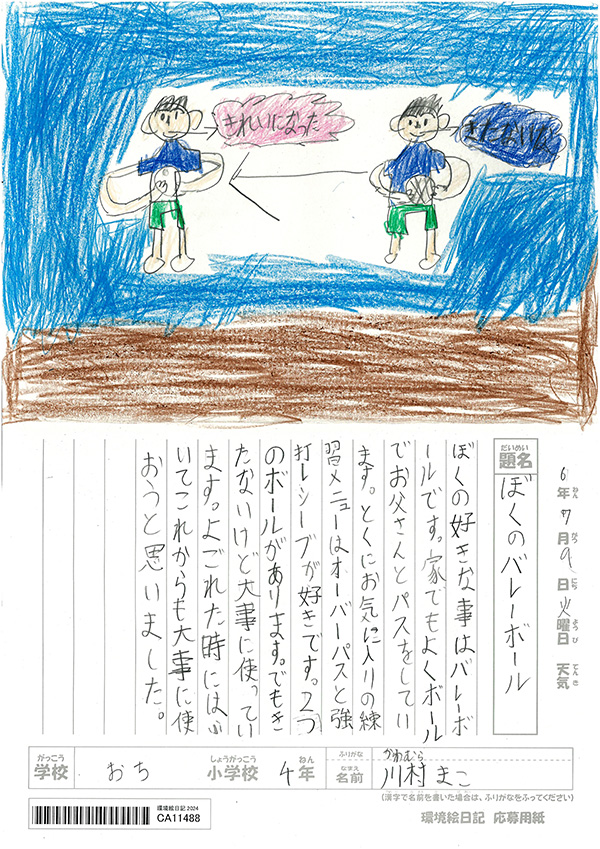 きれいになった
きたないな
6年7月9日火曜日 天気
ねん がつ にち ようび てんき
だいめい
題名
ぼくのバレーボール
ぼくの好きな事はバレーボ
ールです。家でもよくボール
でお父さんとパスをしてい
ます。とくにお気に入りの練
習メニューはオーバーパスと強
打レシーブが好きです。2つ
のボールがあります。でもき
たないけど大事に使ってい
ます。よごれた時にはふ
いてこれからも大事に使
おうと思いました。
がっこう
学校
おち
しょうがっこう
小学校
4
ねん
年
ふりがな
かわむら
なまえ
名前
川村 まこ
(漢字で名前を書いた場合は、ふりがなをふってください)
環境絵日記 2024
CA11488
環境絵日記 応募用紙